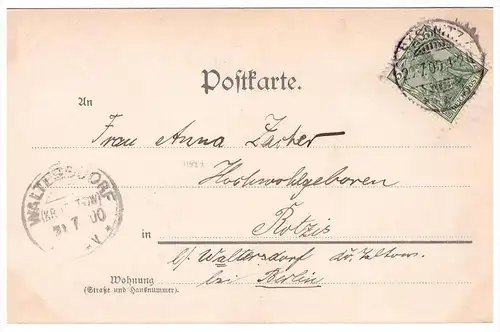 Postkarte.
An
Frau Anna Zacher
Hochwohlgeboren
in Rotzis
b/ Waltersdorf Kr. Teltow.
bei Berlin
Wohnung
(Straße und Hausnummer).
SASSNITZ
WALTERSDORF
7 00